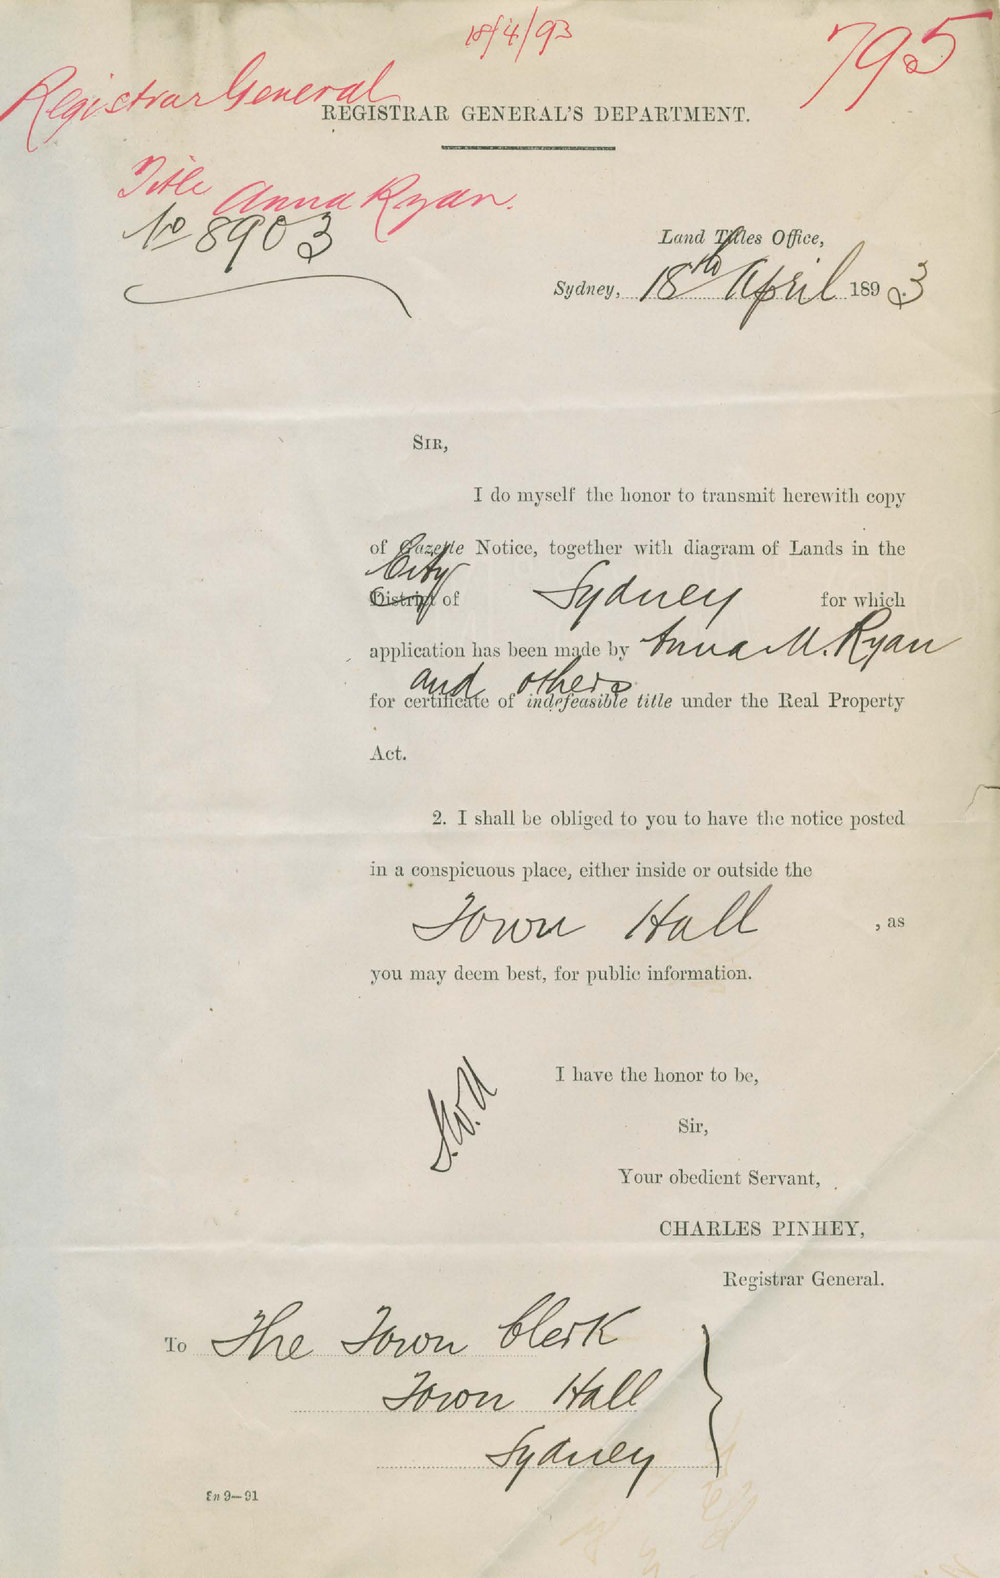 18/4/93
795
Registrar General
REGISTRAR GENERAL'S DEPARTMENT.
Title Anna Ryan.
No 8903
Land Titles Office,
Sydney, 18th April 1893
SIR,
I do myself the honor to transmit herewith copy
of Gazette Notice, together with diagram of Lands in the
City
District of Sydney for which
application has been made by Anna M. Ryan
and others
for certificate of indefeasible title under the Real Property
Act.
2. I shall be obliged to you to have the notice posted
in a conspicuous place, either inside or outside the
Town Hall , as
you may deem best, for public information.
I have the honor to be,
Sir,
Your obedient Servant,
CHARLES PINHEY,
Registrar General.
To The Town Clerk
Town Hall
Sydney